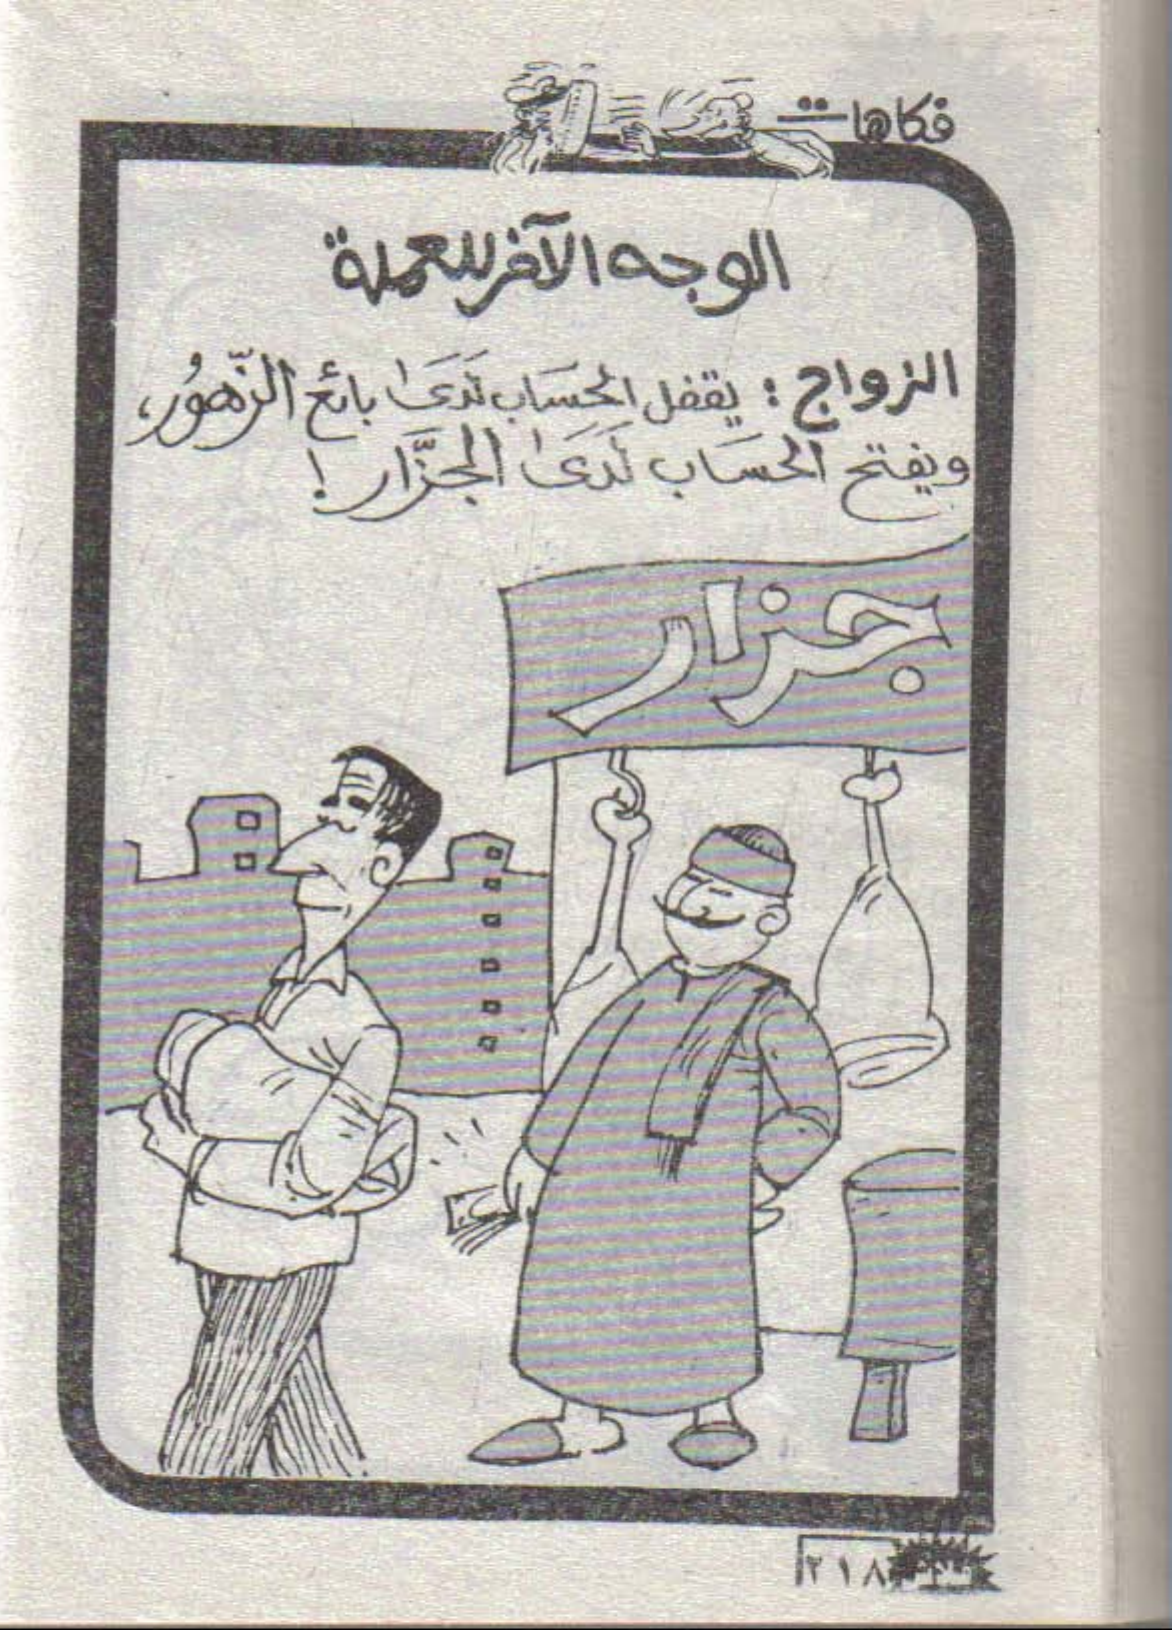 فكاهات
الوجه الآخر للعملة
الزواج : يقفل الحسَاب لَدَىٰ بائع الزّهورُ،
ويفتح الحسَاب لَدَىٰ الجزَّار !
جزار
٢١٨